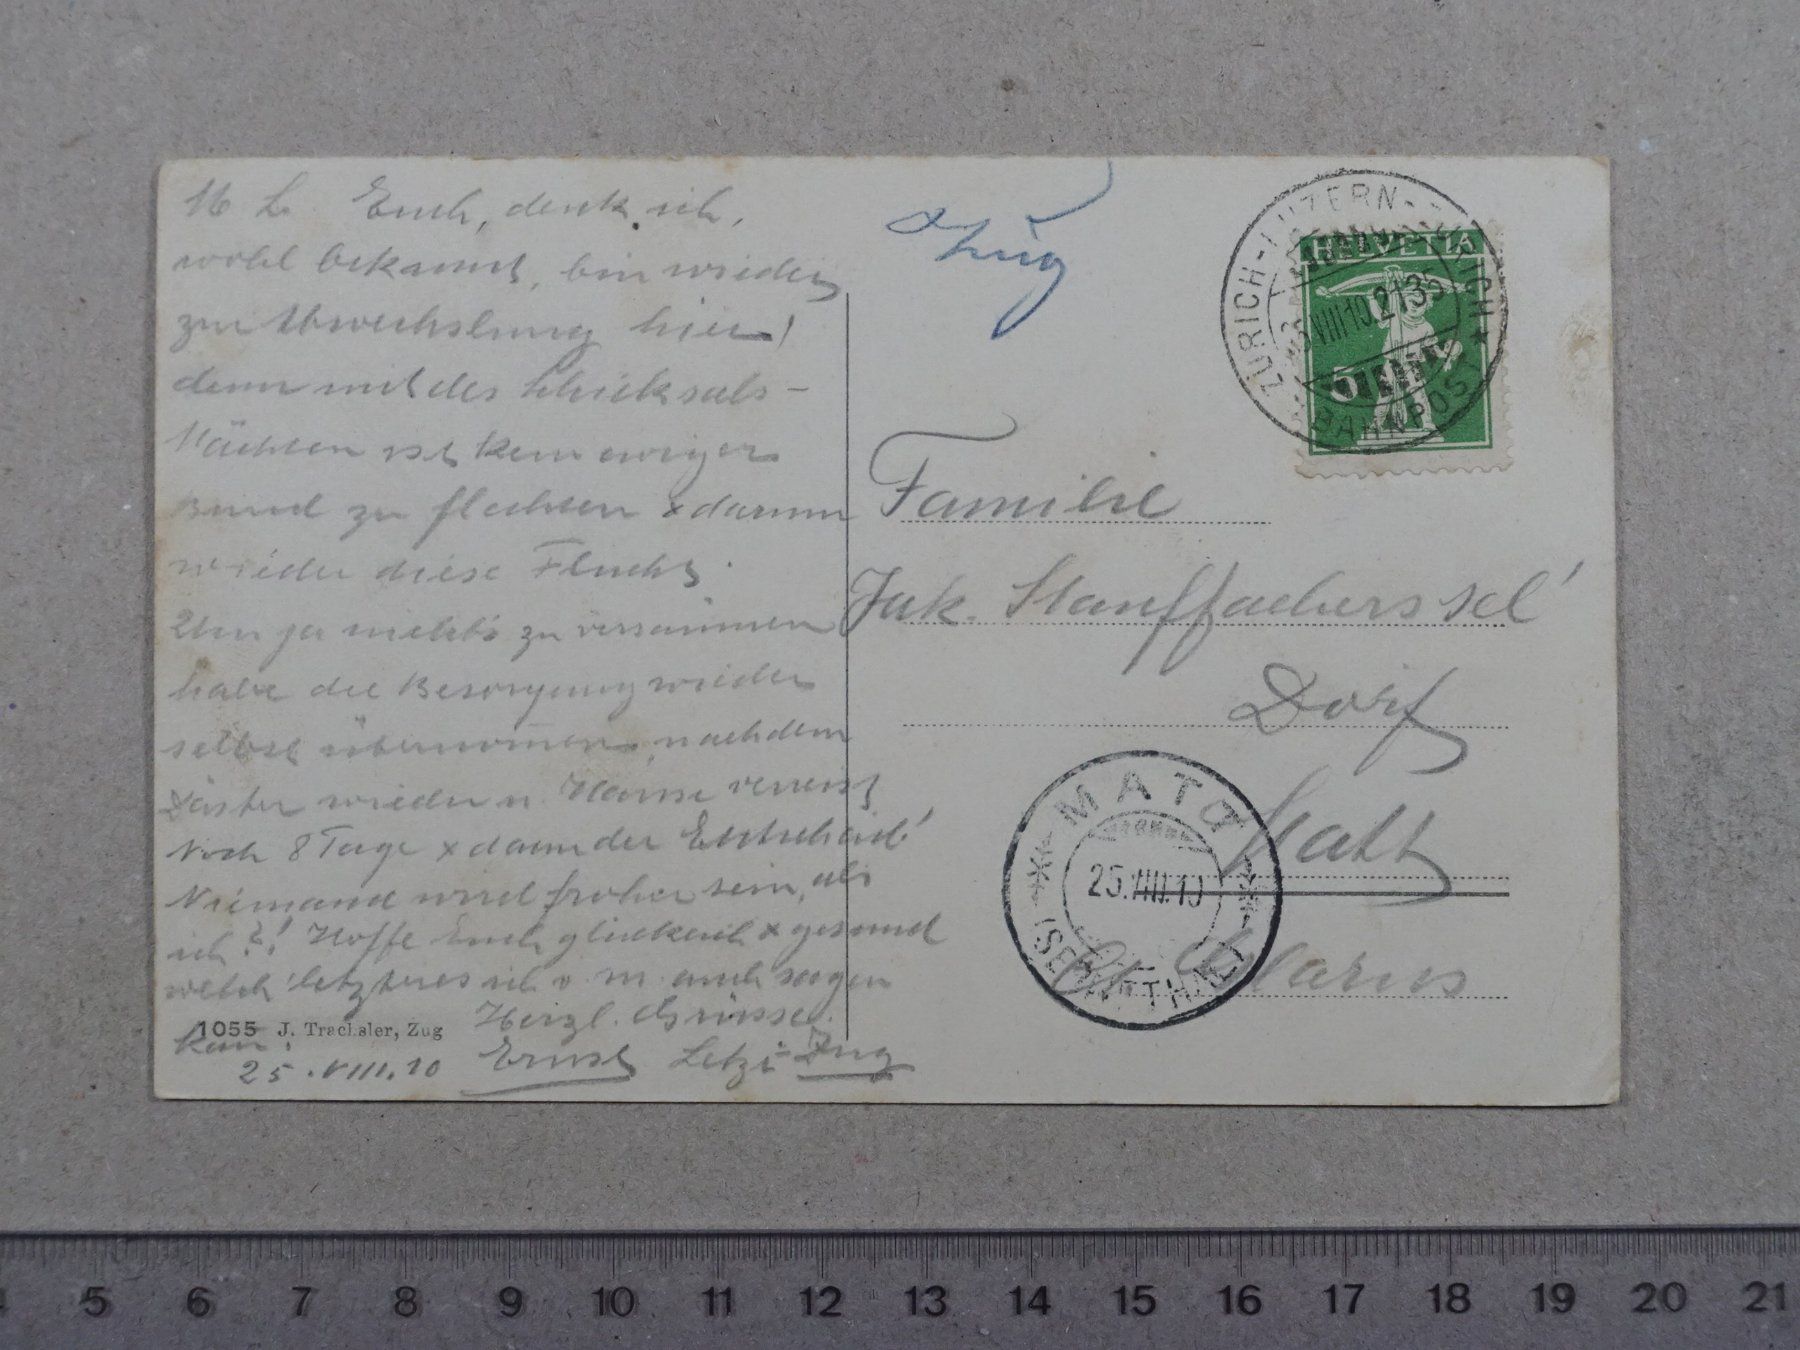 M. L. Euch, denk ich,
wohl bekannt, bin wieder
zur Abwechslung hier!
denn mit des Schicksals-
Mächten ist kein ewiger
Bund zu flechten & darum
wieder diese Flucht.
Um ja nichts zu versäumen
habe die Besorgung wieder
selbst übernommen, nachdem
wieder n. Hause verreist
Noch 8 Tage & dann der Entscheid!
Niemand wird froher sein, als
ich?! Hoffe Euch glücklich & gesund
welch' letzteres ich v. m. auch sagen
kann.
Herzl. Grüsse.
25.VIII.10 Ernst Letzi-Zug
1055 J. Trachsler, Zug
Zug
HELVETIA
5
ZÜRICH-LUZERN-ZÜRICH
VIII10.2135
BAHNPOST
Familie
Jak. Stauffacher's sel'
Dorf
Matt
Ct. Glarus
MATT
25.VIII.10
(SERNFTHAL)
5 6 7 8 9 10 11 12 13 14 15 16 17 18 19 20 21